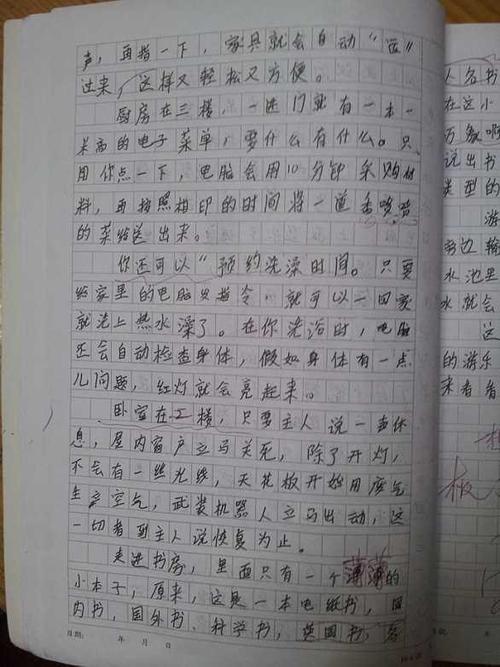 声，再指一下，家具就会自动“运”
过来，这样又轻松又方便。
厨房在三楼，一进门就有一本一
米高的电子菜单，要什么有什么。只
用你点一下，电脑会用10分钟采购材
料，再按照相印的时间将一道香喷喷
的菜给送出来。
你还可以“预约洗澡时间。只要
给家里的电脑发指令，就可以一回家
就洗上热水澡了。在你洗浴时，电脑
还会自动检查身体，假如身体有一点
儿问题，红灯就会亮起来。
卧室在二楼，只要主人说一声休
息，屋内窗户立马关死，除了开灯，
不会有一丝光线，天花板开始用废气
生产空气，武装机器人立马出动，这
一切者到主人说恢复为止。
走进书房，里面只有一个薄薄的
小本子，原来，这是一本电纸书，国
内书，国外书、科学书，英国书，各
日期： 年 月 日
人名书
在这小
万多啊
说出书
类型的
游
旁边输
水池里
水就会
的游乐
来者看
板